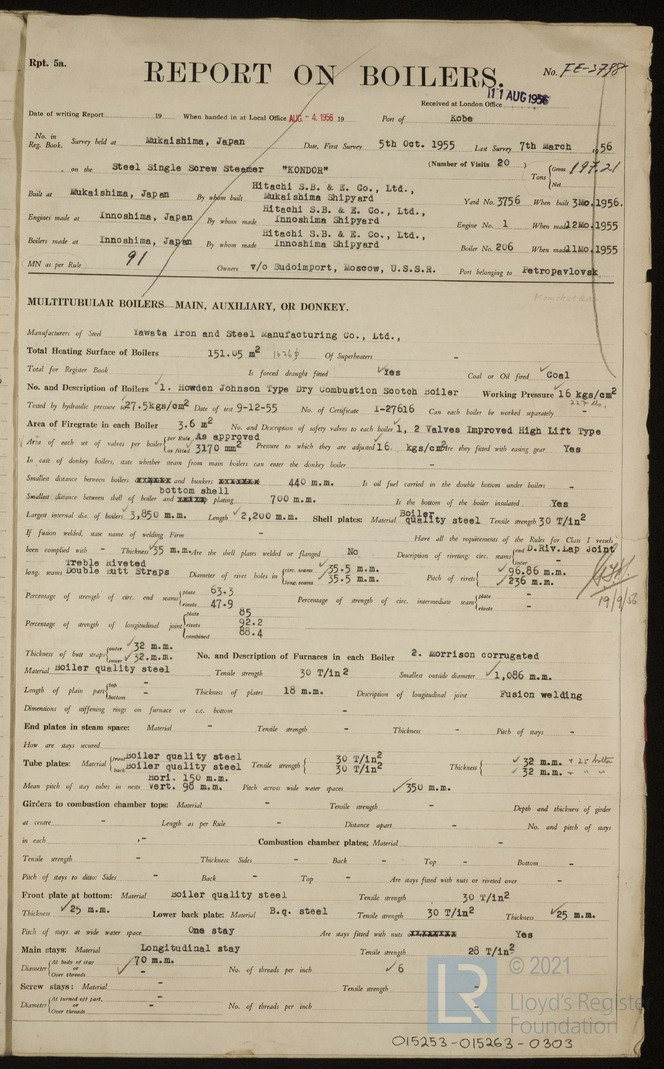 Rpt. 5a.
No. FE-3798
REPORT ON BOILERS.
Received at London Office 11 AUG 1956
Date of writing Report 19 When handed in at Local Office AUG - 4. 1956 19 Port of Kobe
No. in Reg. Book. Survey held at Mukaishima, Japan Date, First Survey 5th Oct. 1955 Last Survey 7th March 1956
on the Steel Single Screw Steamer "KONDOR" (Number of Visits 20 ) Tons {Gross 197.21 Net
Built at Mukaishima, Japan By whom built Hitachi S.B. & E. Co., Ltd., Mukaishima Shipyard Yard No. 3756 When built 3Mo.1956.
Engines made at Innoshima, Japan By whom made Hitachi S.B. & E. Co., Ltd., Innoshima Shipyard Engine No. 1 When made 12Mo.1955
Boilers made at Innoshima, Japan By whom made Hitachi S.B. & E. Co., Ltd., Innoshima Shipyard Boiler No. 206 When made 11Mo.1955
MN as per Rule 91 Owners v/o Sudoimport, Moscow, U.S.S.R. Port belonging to Petropavlovsk
MULTITUBULAR BOILERS MAIN, AUXILIARY, OR DONKEY.
Manufacturers of Steel Yawata Iron and Steel Manufacturing Co., Ltd.,
Total Heating Surface of Boilers 151.05 m2 Of Superheaters -
Total for Register Book Is forced draught fitted Yes Coal or Oil fired Coal
No. and Description of Boilers 1. Howden Johnson Type Dry Combustion Scotch Boiler Working Pressure 16 kgs/cm2
Tested by hydraulic pressure to 27.5kgs/cm2 Date of test 9-12-55 No. of Certificate I-27616 Can each boiler be worked separately -
Area of Firegrate in each Boiler 3.6 m2 No. and Description of safety valves to each boiler 1, 2 Valves Improved High Lift Type
Area of each set of valves per boiler {per Rule As approved as fitted 3170 mm2 Pressure to which they are adjusted 16 kgs/cm2 Are they fitted with easing gear Yes
In case of donkey boilers, state whether steam from main boilers can enter the donkey boiler -
Smallest distance between boilers and bunkers 440 m.m. Is oil fuel carried in the double bottom under boilers -
Smallest distance between shell of boiler and bottom shell plating 700 m.m. Is the bottom of the boiler insulated Yes
Largest internal dia. of boilers 3,850 m.m. Length 2,200 m.m. Shell plates: Material Boiler quality steel Tensile strength 30 T/in2
If fusion welded, state name of welding Firm - Have all the requirements of the Rules for Class I vessels
been complied with - Thickness 35 m.m. Are the shell plates welded or flanged No Description of riveting: circ. seams {end D.Riv.Lap Joint inter -
long. seams Treble Riveted Double Butt Straps Diameter of rivet holes in {circ. seams 35.5 m.m. long. seams 35.5 m.m. Pitch of rivets {96.86 m.m. 236 m.m.
19/9/56
Percentage of strength of circ. end seams {plate 63.3 rivets 47.9 Percentage of strength of circ. intermediate seam {plate - rivets -
Percentage of strength of longitudinal joint {plate 85 rivets 92.2 combined 88.4
Thickness of butt straps {outer 32 m.m. inner 32.m.m. No. and Description of Furnaces in each Boiler 2. Morrison corrugated
Material Boiler quality steel Tensile strength 30 T/in2 Smallest outside diameter 1,086 m.m.
Length of plain part {top - bottom - Thickness of plates 18 m.m. Description of longitudinal joint Fusion welding
Dimensions of stiffening rings on furnace or c.c. bottom -
End plates in steam space: Material - Tensile strength - Thickness - Pitch of stays -
How are stays secured -
Tube plates: Material {front Boiler quality steel back Boiler quality steel Tensile strength {30 T/in2 30 T/in2 Thickness {32 m.m. 32 m.m.
Mean pitch of stay tubes in nests Hori. 150 m.m. Vert. 98 m.m. Pitch across wide water spaces 350 m.m.
Girders to combustion chamber tops: Material - Tensile strength - Depth and thickness of girder
at centre - Length as per Rule - Distance apart - No. and pitch of stays
in each - Combustion chamber plates; Material -
Tensile strength - Thickness: Sides - Back - Top - Bottom -
Pitch of stays to ditto: Sides - Back - Top - Are stays fitted with nuts or riveted over -
Front plate at bottom: Material Boiler quality steel Tensile strength 30 T/in2
Thickness 25 m.m. Lower back plate: Material B.q. steel Tensile strength 30 T/in2 Thickness 25 m.m.
Pitch of stays at wide water space One stay Are stays fitted with nuts Yes
Main stays: Material Longitudinal stay Tensile strength 28 T/in2
Diameter {At body of stay 70 m.m. or Over threads - No. of threads per inch 6
Screw stays: Material - Tensile strength -
Diameter {At turned off part, or Over threads - No. of threads per inch -
© 2021
LR Lloyd's Register
Foundation
015253-015263-0303